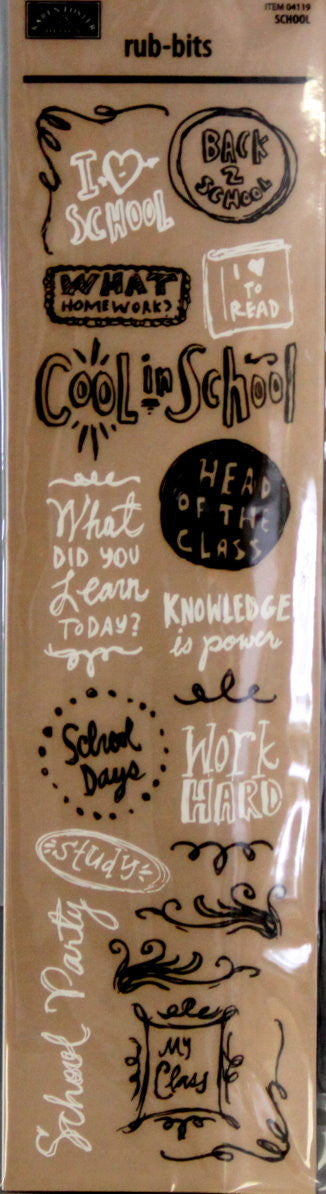 KAREN FOSTER
DESIGN
ITEM 04119
SCHOOL
rub-bits
I
SCHOOL
BACK
2
SCHOOL
WHAT
HOMEWORK?
I
TO
READ
Cool in School
HEAD
OF THE
CLASS
What
DID YOU
Learn
TODAY?
KNOWLEDGE
is power
School
Days
Work
HARD
Study
School Party
My
Class